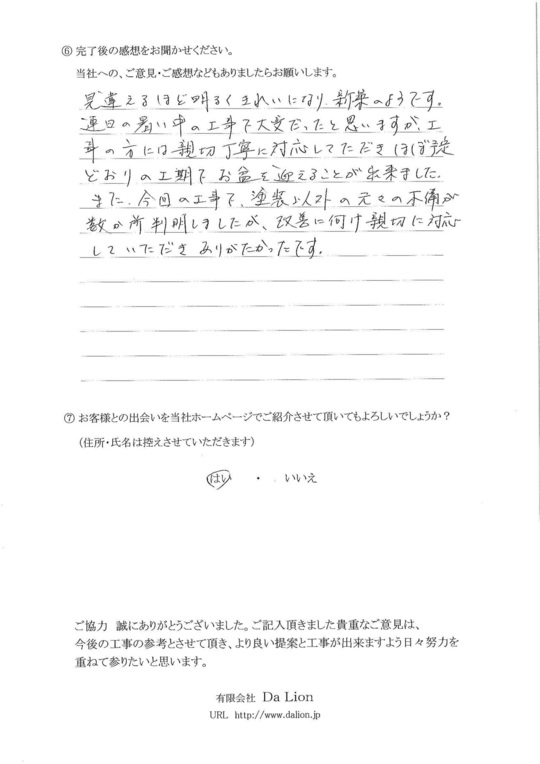 ⑥ 完了後の感想をお聞かせください。
当社への、ご意見・ご感想などもありましたらお願いします。
見違えるほど明るくきれいになり、新築のようです。
連日の暑い中の工事で大変だったと思いますが、工
事の方には親切丁寧に対応してただきほぼ予定
どおりの工期でお盆を迎えることが出来ました。
また、今回の工事で、塗装以外の元々の不備が
数か所判明しましたが、改善に向け親切に対応
していただきありがたかったです。
⑦ お客様との出会いを当社ホームページでご紹介させて頂いてもよろしいでしょうか？
（住所・氏名は控えさせていただきます）
はい ・ いいえ
ご協力 誠にありがとうございました。ご記入頂きました貴重なご意見は、
今後の工事の参考とさせて頂き、より良い提案と工事が出来ますよう日々努力を
重ねて参りたいと思います。
有限会社 Da Lion
URL http://www.dalion.jp